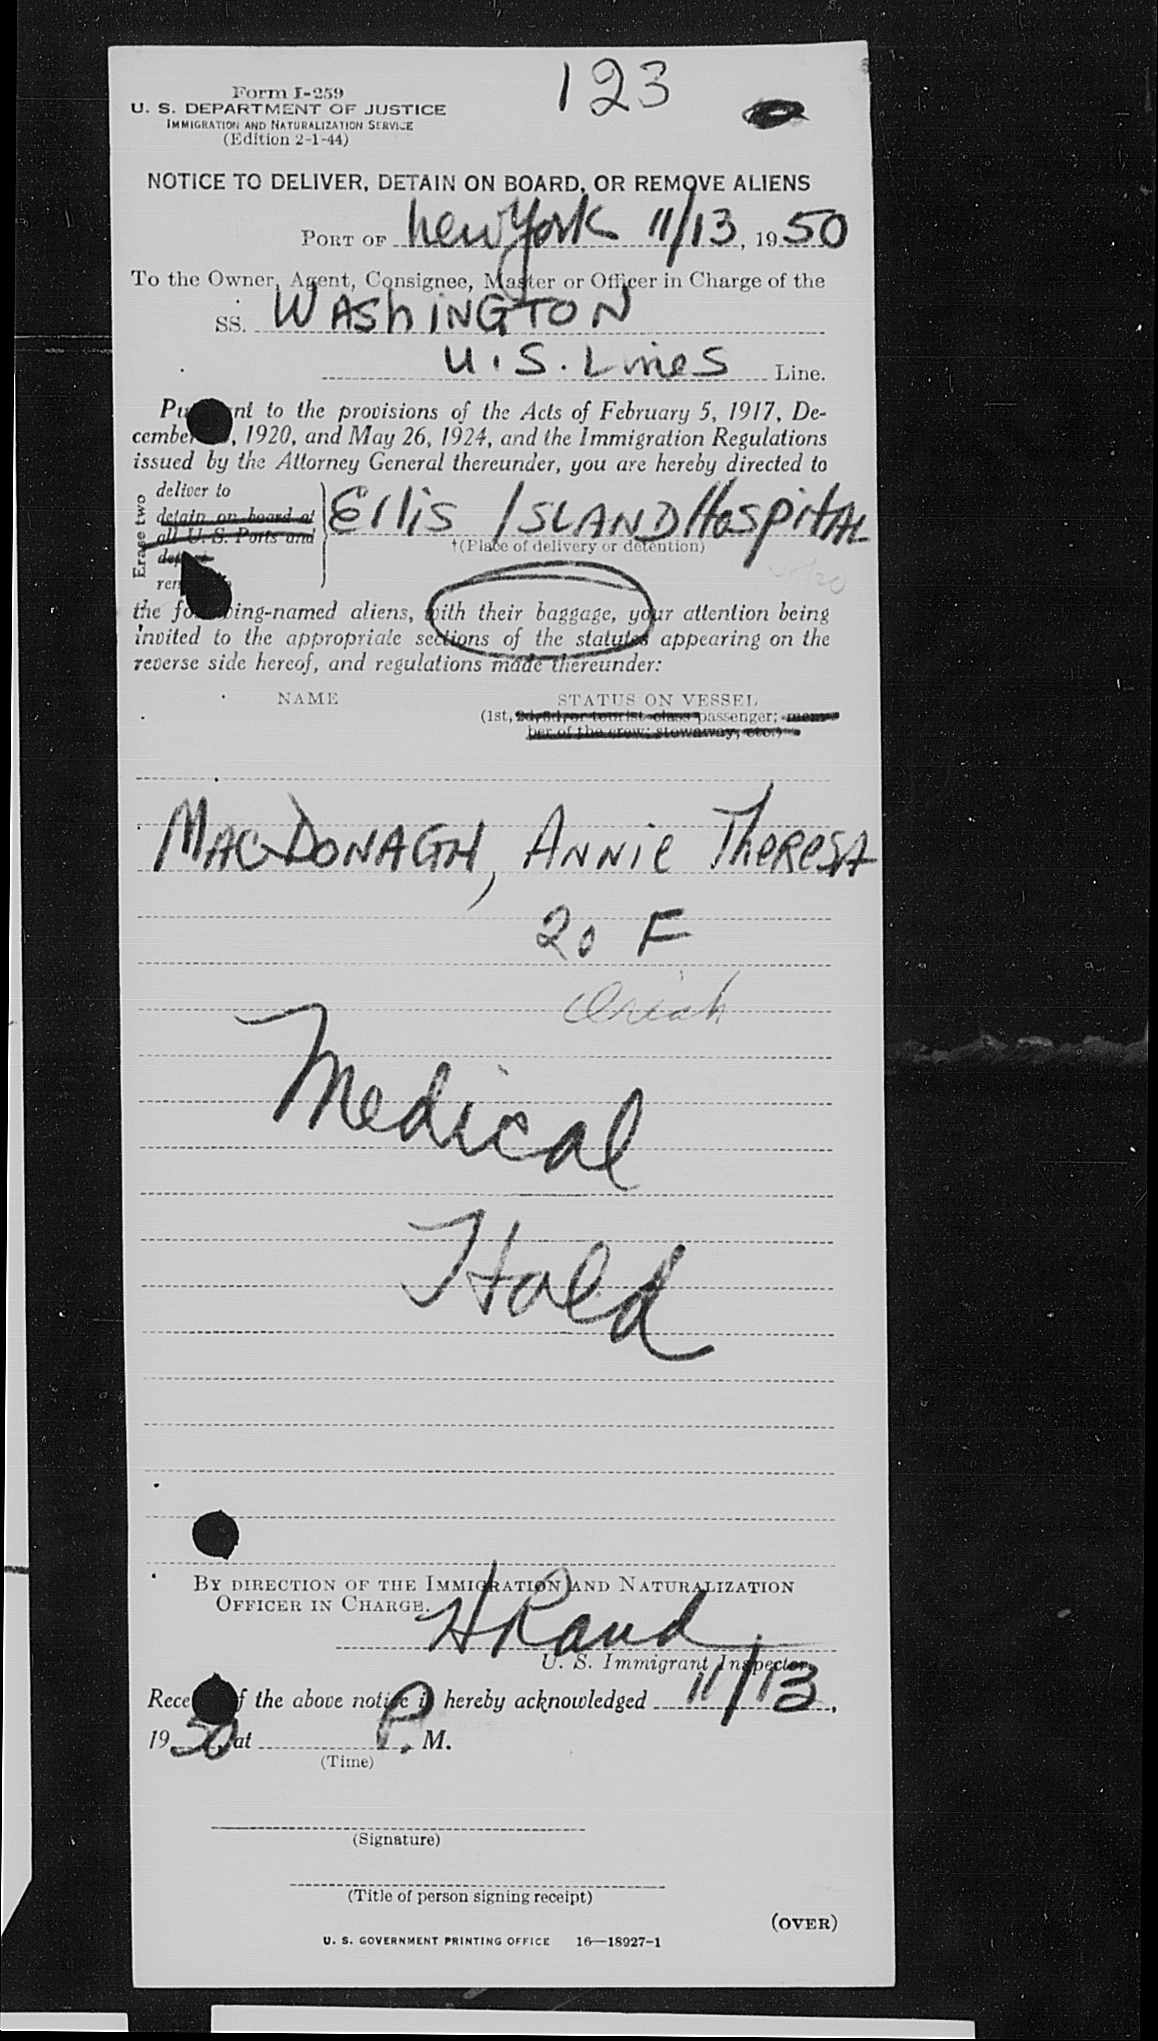 123
Form I-259
U. S. DEPARTMENT OF JUSTICE
IMMIGRATION AND NATURALIZATION SERVICE
(Edition 2-1-44)
NOTICE TO DELIVER, DETAIN ON BOARD, OR REMOVE ALIENS
PORT OF New York 11/13, 1950
To the Owner, Agent, Consignee, Master or Officer in Charge of the
SS. WAShiNGTON
U.S. Lines Line.
to the provisions of the Acts of February 5, 1917, De-
cember , 1920, and May 26, 1924, and the Immigration Regulations
issued by the Attorney General thereunder, you are hereby directed to
Erase two
deliver to
detain on board at
all U. S. Ports and
Ellis ISLAND HospitAL
†(Place of delivery or detention)
the following-named aliens, with their baggage, your attention being
invited to the appropriate sections of the statutes appearing on the
reverse side hereof, and regulations made thereunder:
NAME STATUS ON VESSEL
(1st, 2d, 3d, or tourist class passenger; mem-
ber of the crew; stowaway, etc.)
MACDONAGH, ANNie TheResA
20 F
Irish
Medical
Hold
BY DIRECTION OF THE IMMIGRATION AND NATURALIZATION
OFFICER IN CHARGE.
H Rand
U. S. Immigrant Inspector
Receipt of the above notice is hereby acknowledged 11/13,
1950, at P. M.
(Time)
(Signature)
(Title of person signing receipt)
(OVER)
U. S. GOVERNMENT PRINTING OFFICE 16—18927-1